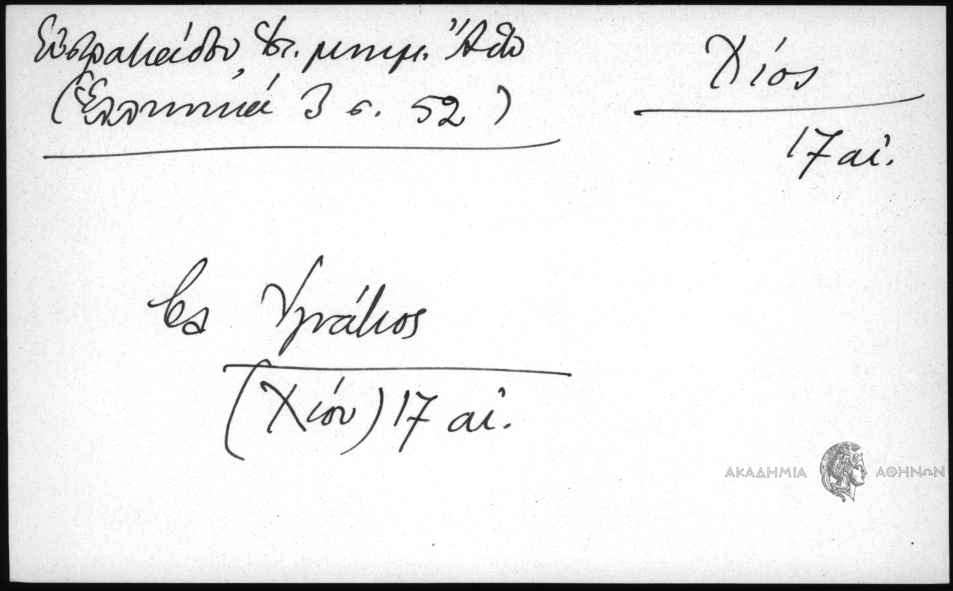 Εὐστρατιάδου Ἱστ. μνημ. Ἄθω
Χίος
(Ἑλληνικά 3 σ. 52)
17 αἰ.
Ἰγνάτιος
(Χίου) 17 αἰ.
ΑΚΑΔΗΜΙΑ ΑΘΗΝΩΝ